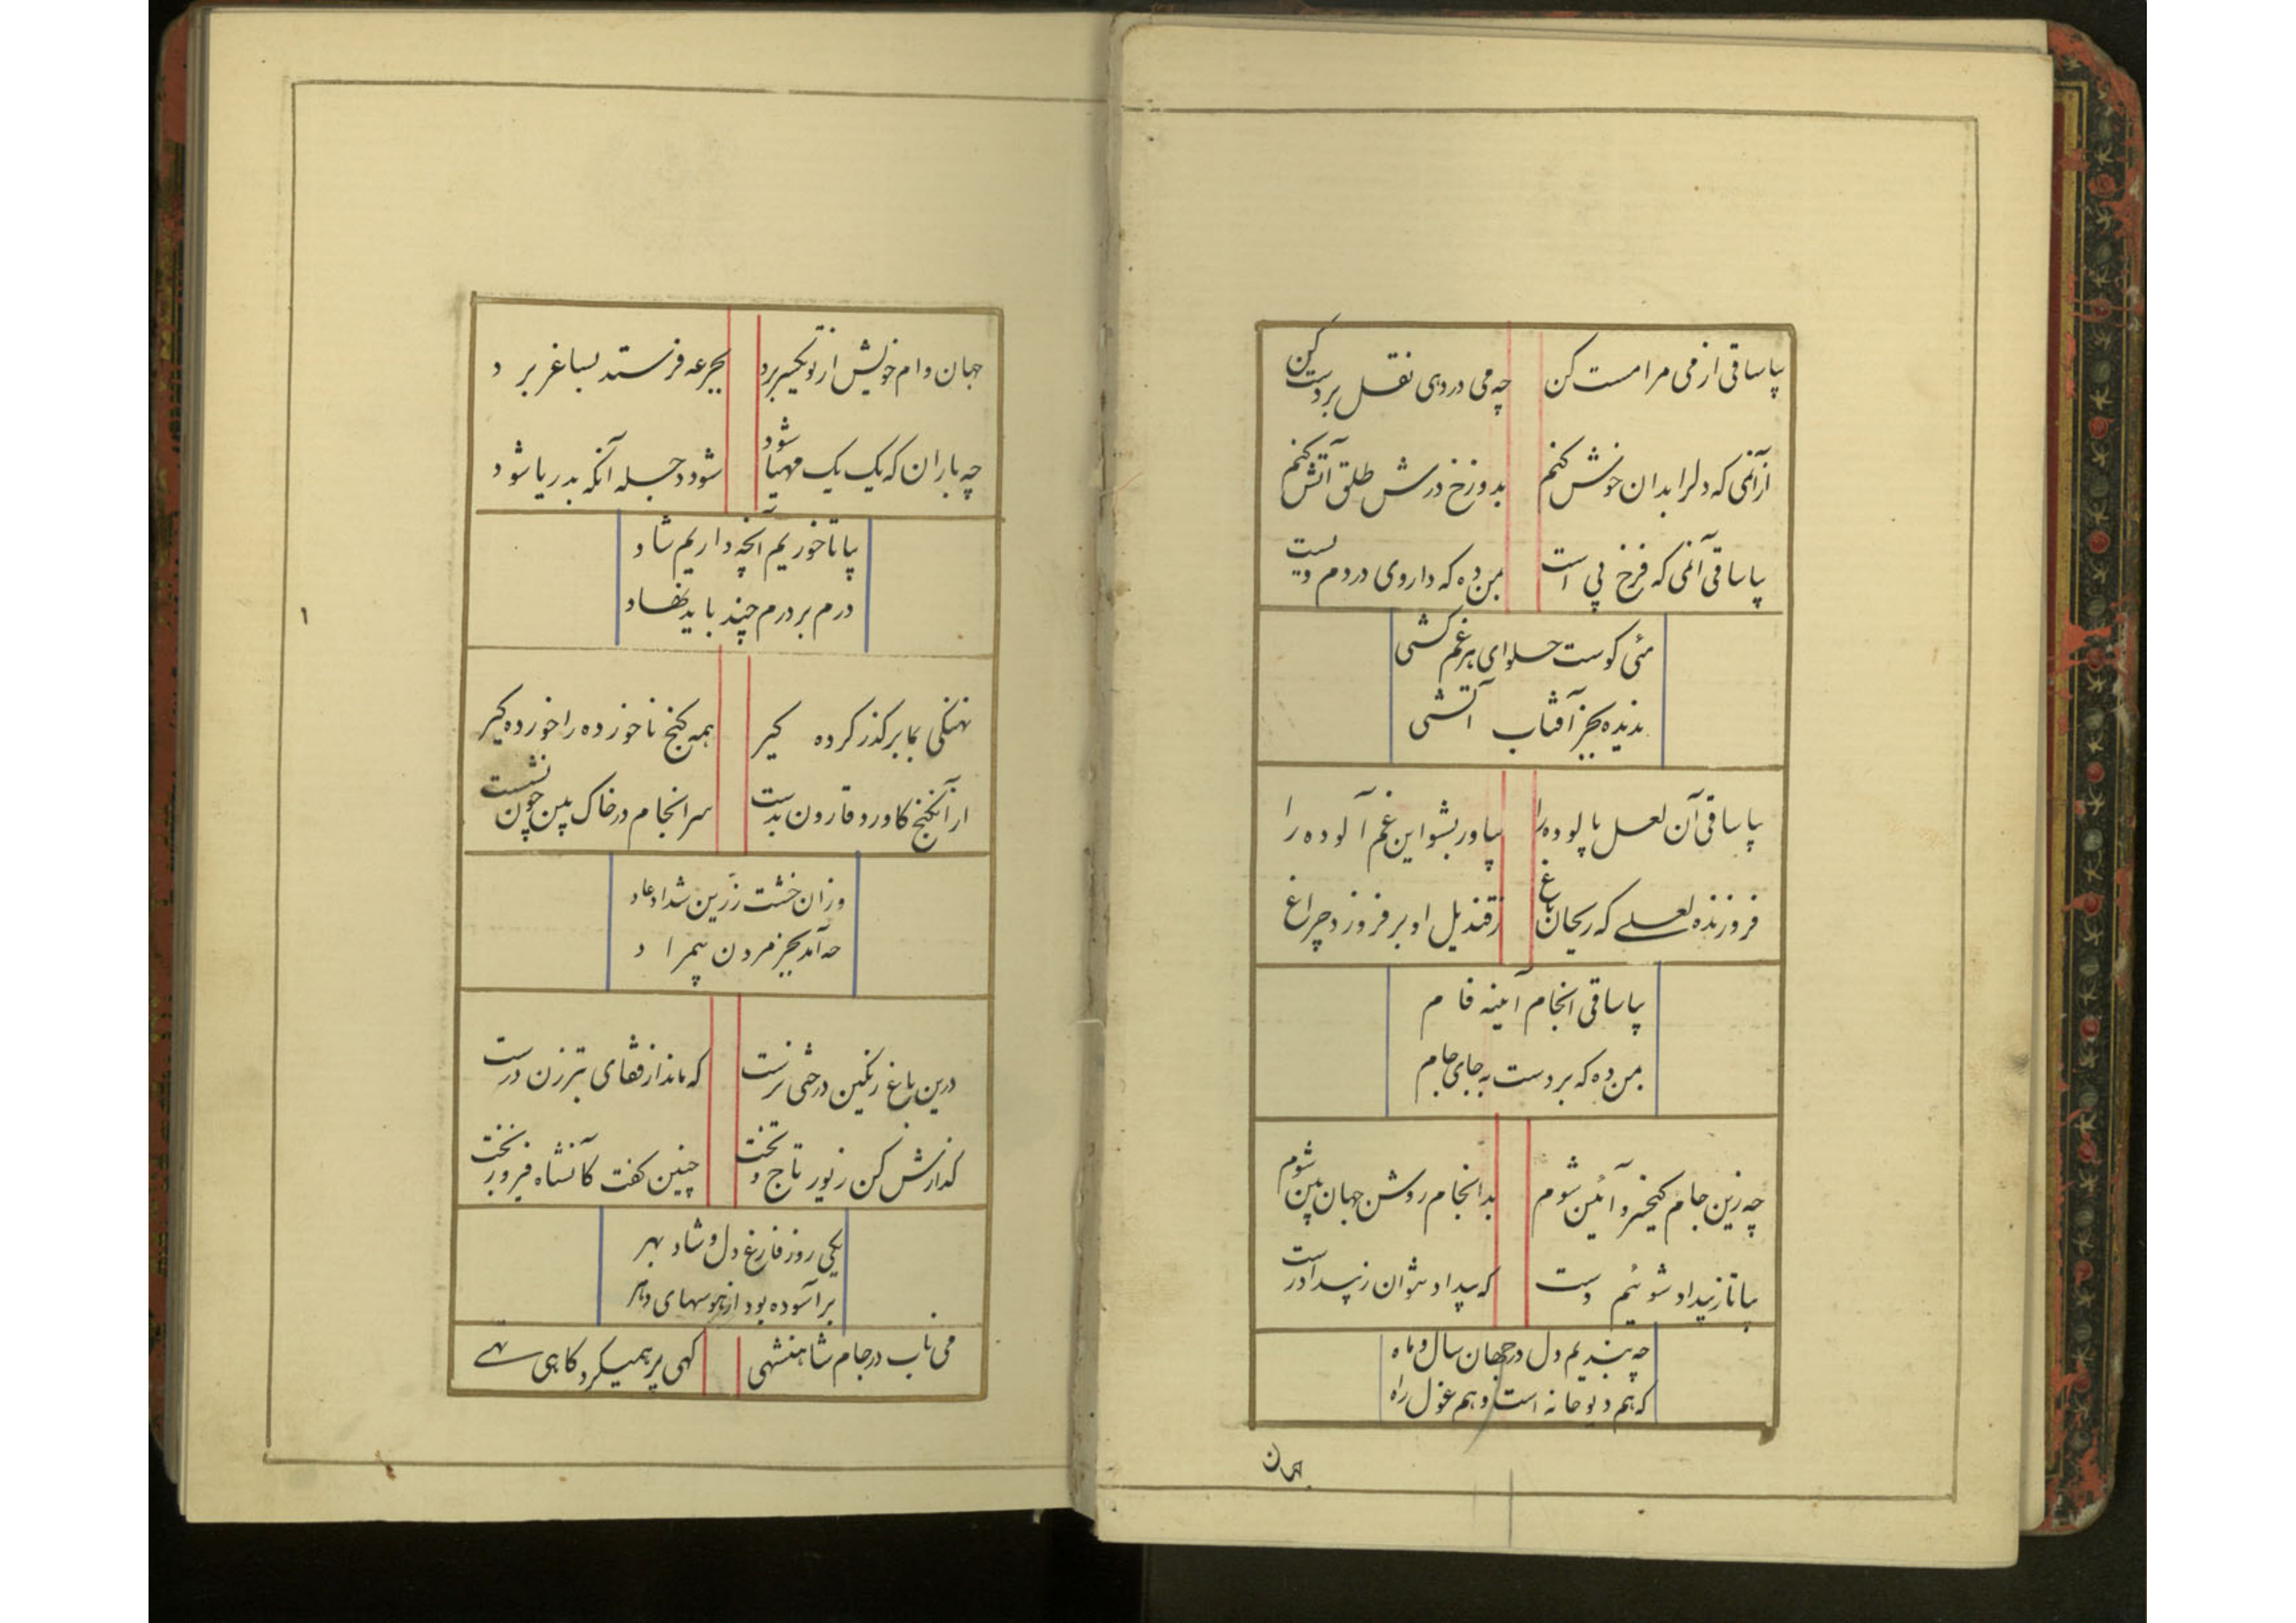 بیا ساقی از می مرا مست کن چه می در دهی نقل بر دست کن
از آن می که دلرا بدان خوش کنم بدوزخ درش طلق آتش کنم
بیا ساقی آن می که فرخ پی است بمن ده که داروی دردم ویست
مئی کوست حلوای هر غم کشی
ندیده بجز آفتاب آتشی
بیا ساقی آن لعل پالوده را بیاور بشو این غم آلوده را
فروزنده لعلی که ریحان باغ ز قندیل او برفروزد چراغ
بیا ساقی انجام آیینه فام
بمن ده که بر دست به جای جام
چه زین جام کیخسرو آئین شوم بدانجام روشن جهان بین شوم
بیا تا ز بیداد شوئیم دست که بیداد نتوان ز بیداد رست
چه بندیم دل در جهان سال و ماه
که هم دیو خانه است و هم غول راه
جهان
جهان وام خویش از تو یکسر برد بجرعه فرستد بساغر برد
چه باران که یک یک مهیا شود شود دجله آنکه بدریا شود
بیا تا خوریم آنچه داریم شاد
درم بر درم چند باید نهاد
نهنگی بما بر گذر کرده گیر همه گنج ناخورده را خورده گیر
از آنگنج کاورد قارون بدست سرانجام در خاک بین چون نشست
وزان خشت زرین شداد عاد
چه آمد بجز مردن بیمراد
درین باغ رنگین درختی نرست که ماند از قفای تبرزن درست
گذارش کن زیور تاج و تخت چنین گفت کانشاه فیروز بخت
یکی روز فارغ دل و شاد بهر
برآسوده بود از هوسهای دهر
می ناب در جام شاهنشهی گهی پر همیکرد گاهی تهی
۱